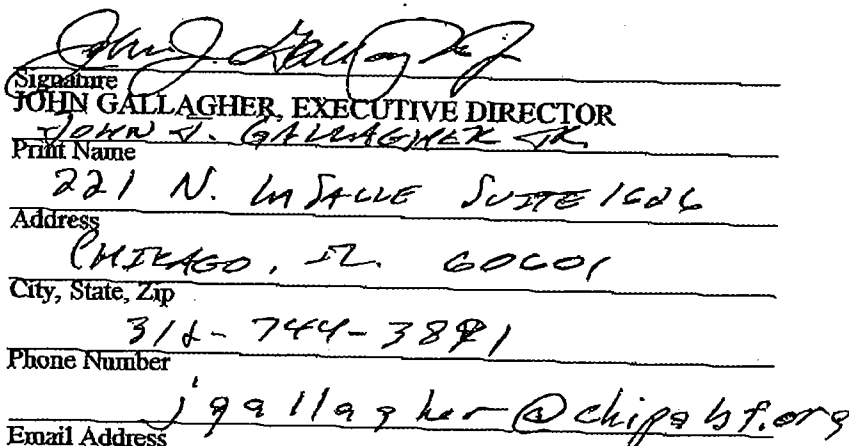 John J. Gallagher Jr.
Signature
JOHN GALLAGHER, EXECUTIVE DIRECTOR
JOHN J. GALLAGHER JR.
Print Name
221 N. LASALLE SUITE 1626
Address
CHICAGO, IL. 60601
City, State, Zip
312-744-3891
Phone Number
jgallagher@chipabf.org
Email Address